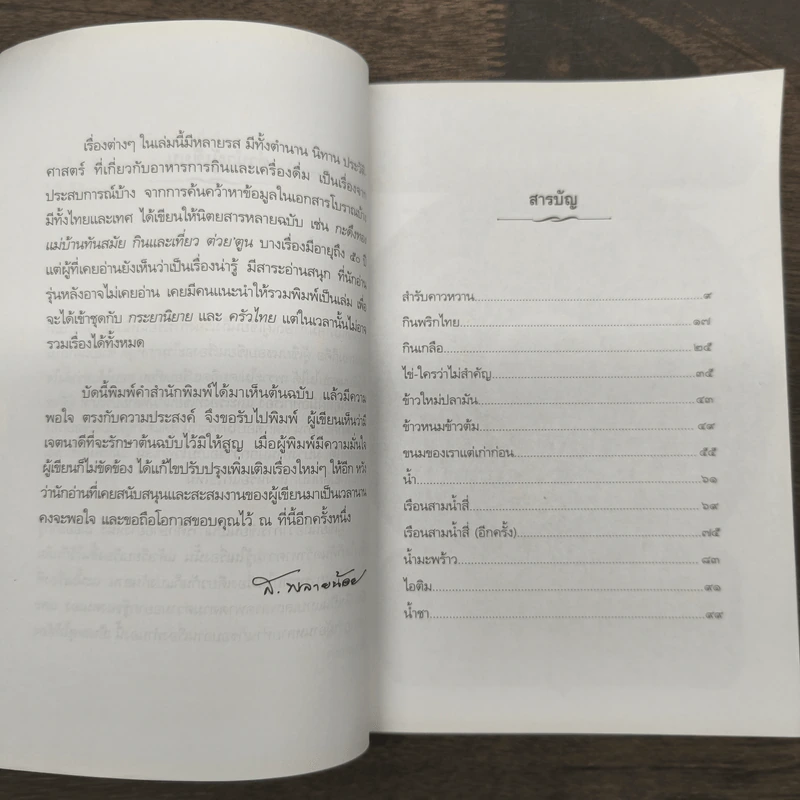 เรื่องต่างๆ ในเล่มนี้มีหลายรส มีทั้งตำนาน นิทาน ประวัติ
ศาสตร์ ที่เกี่ยวกับอาหารการกินและเครื่องดื่ม เป็นเรื่องจาก
ประสบการณ์บ้าง จากการค้นคว้าหาข้อมูลในเอกสารโบราณบ้าง
มีทั้งไทยและเทศ ได้เขียนให้นิตยสารหลายฉบับ เช่น กะดึงทอง
แม่บ้านทันสมัย กินและเที่ยว ต่วย'ตูน บางเรื่องมีอายุถึง ๕๐ ปี
แต่ผู้ที่เคยอ่านยังเห็นว่าเป็นเรื่องน่ารู้ มีสาระอ่านสนุก ที่นักอ่าน
รุ่นหลังอาจไม่เคยอ่าน เคยมีคนแนะนำให้รวมพิมพ์เป็นเล่ม เพื่อ
จะได้เข้าชุดกับ กระยานิยาย และ ครัวไทย แต่ในเวลานั้นไม่อาจ
รวมเรื่องได้ทั้งหมด
บัดนี้พิมพ์คำสำนักพิมพ์ได้มาเห็นต้นฉบับ แล้วมีความ
พอใจ ตรงกับความประสงค์ จึงขอรับไปพิมพ์ ผู้เขียนเห็นว่ามี
เจตนาดีที่จะรักษาต้นฉบับไว้มิให้สูญ เมื่อผู้พิมพ์มีความมั่นใจ
ผู้เขียนก็ไม่ขัดข้อง ได้แก้ไขปรับปรุงเพิ่มเติมเรื่องใหม่ๆ ให้อีก หวัง
ว่านักอ่านที่เคยสนับสนุนและสะสมงานของผู้เขียนมาเป็นเวลานาน
คงจะพอใจ และขอถือโอกาสขอบคุณไว้ ณ ที่นี้อีกครั้งหนึ่ง
ส. พลายน้อย
สารบัญ
สำรับคาวหวาน ๙
กินพริกไทย ๑๗
กินเกลือ ๒๕
ไข่-ใครว่าไม่สำคัญ ๓๕
ข้าวใหม่ปลามัน ๔๓
ข้าวหนมข้าวต้ม ๔๙
ขนมของเราแต่เก่าก่อน ๕๕
น้ำ ๖๑
เรือนสามน้ำสี่ ๖๙
เรือนสามน้ำสี่ (อีกครั้ง) ๗๕
น้ำมะพร้าว ๘๓
ไอติม ๙๑
น้ำชา ๙๙